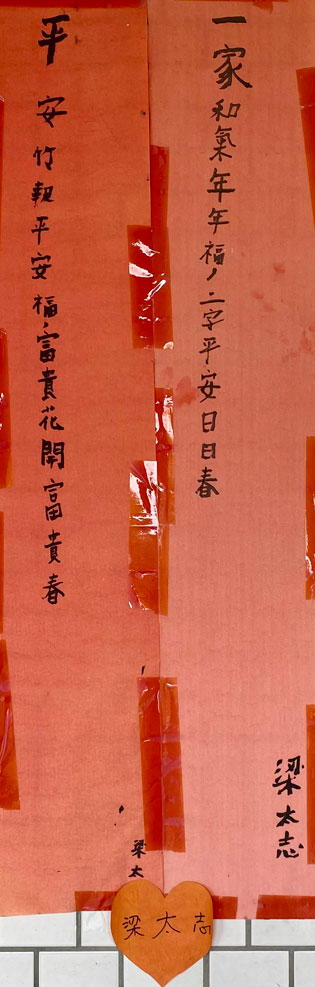 一家和氣年年福、二字平安日日春
梁太志
平安竹報平安福、富貴花開富貴春
梁太
梁太志